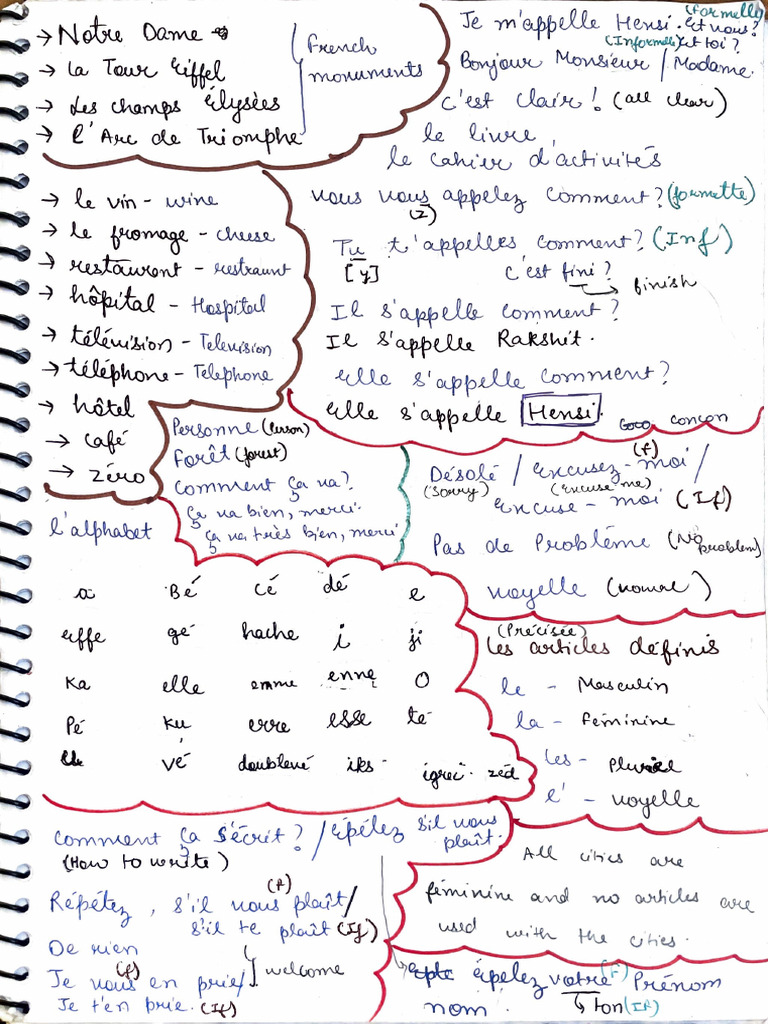 → Notre Dame
→ La Tour Eiffel
→ Les champs Élysées
→ L'Arc de Triomphe
French
monuments
(formelly)
Je m'appelle Hensi. Et vous?
(Informelle) Et toi?
Bonjour Monsieur / Madame.
C'est clair! (all clear)
le livre
le cahier d'activités
vous vous appelez comment? (formette)
(z)
Tu t'appelles comment? (Inf)
[y]
c'est fini?
finish
Il s'appelle comment?
Il s'appelle Rakshit.
Elle s'appelle comment?
Elle s'appelle Hensi.
→ le vin - wine
→ le fromage - cheese
→ restaurent - restraunt
→ hôpital - Hospital
→ télévision - Television
→ téléphone - Telephone
→ hôtel
→ café
→ zéro
Personne (person)
Forêt (forest)
Comment ça va?
Ça va bien, merci.
Ça va très bien, merci
concon
(f)
Désolé / Excusez-moi /
(sorry) (excuse me)
Excuse-moi (If)
Pas de Problème (No problem)
voyelle
l'alphabet
a Bé cé dé e
effe gé hache i ji
Ka elle emme enne O
Pé Ku erre esse té
vé doublevé iks igrec zéd
(Précisée)
Les articles définis
le - Masculin
la - féminine
les - pluriel
l' - voyelle
Comment ça s'écrit? / Épélez s'il vous
plaît.
(How to write)
All cities are
féminine and no articles are
used with the cities.
(f)
Répétez, s'il vous plaît/
s'il te plaît (If)
De rien
(f)
Je vous en prie/
Je t'en prie. (If)
welcome
épelez votre (F) Prénom
nom. ton (If)